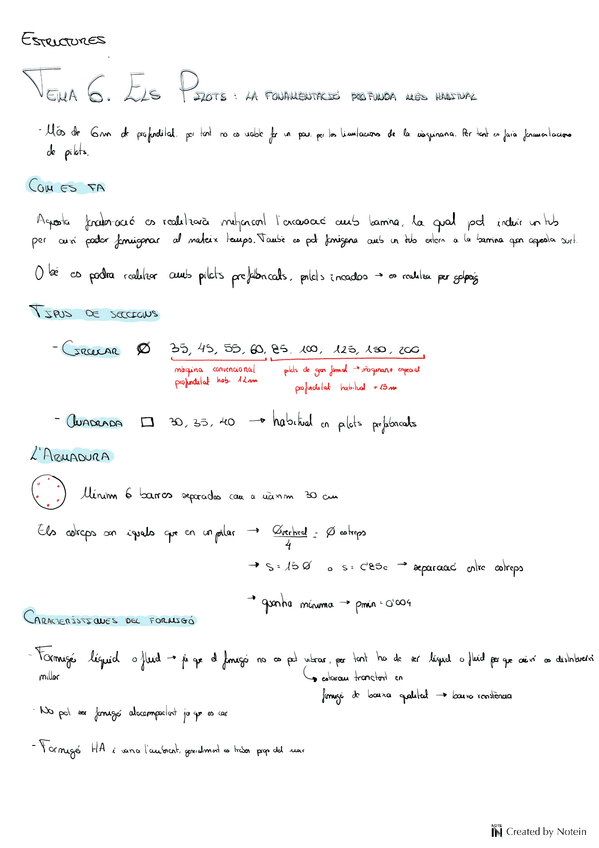 ESTRUCTURES
TEMA 6. ELS PILOTS: LA FONAMENTACIÓ PROFUNDA MÉS HABITUAL
- Més de 6m de profunditat. per tant no es viable fer un pou per les limitacions de la maquinaria. Per tant es farà fonamentacions
de pilots.
COM ES FA
Aquesta fonamentació es realitzarà mitjançant l'excavació amb barrina, la qual pot incluir un tub
per així poder formigonar al mateix temps. També es pot formigonar amb un tub extern a la barrina quan aquesta surt.
O bé es podra realitzar amb pilots prefabricats, pilots incados → es realitza per golpeig
TIPUS DE SECCIONS
- CIRCULAR Ø 35, 45, 55, 60, 85, 100, 125, 150, 200
màquina convencional pilots de gran format → màquinaria especial
profunditat hab. 12m profunditat habitual = 15m
- QUADRADA □ 30, 35, 40 → habitual en pilots prefabricats
L'ARMADURA
Mínim 6 barres separades com a màxim 30 cm
Els estreps son iguals que en un pilar → Øvertical/4 = Ø estreps
→ s = 15 Ø o s = 0'85c → separació entre estreps
→ quantia mínima → ρmin = 0'004
CARACTERÍSTIQUES DEL FORMIGÓ
- Formigó líquid o fluid → ja que el formigó no es pot vibrar, per tant ha de ser líquid o fluid per que així es distribueixi
millor
↳ estarem tractant en
formigó de baixa qualitat → baixa resistència
- No pot ser formigó autocompactant ja que es car
- Formigó HA i varia l'ambient, generalment es troben prop del mar
NOTE IN Created by Notein